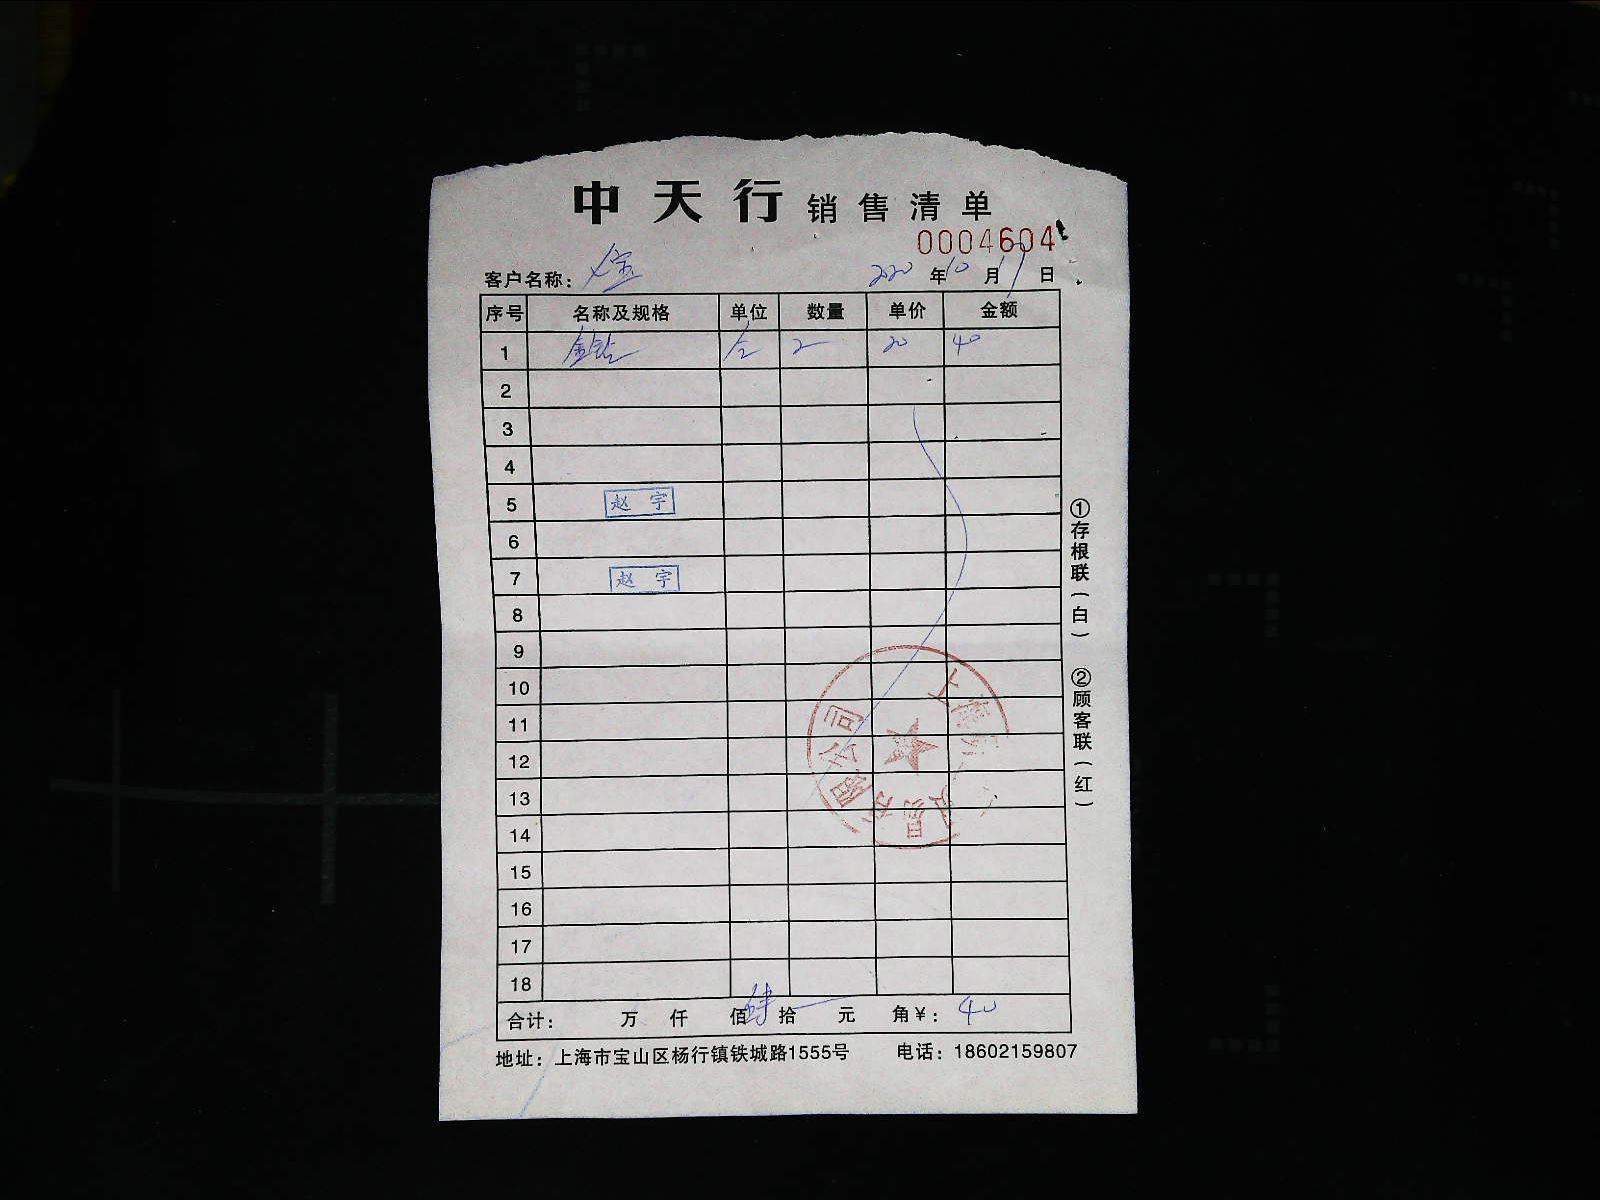 中天行 销售清单
0004604
客户名称： 宝 2020 年 10 月 17 日
序号 名称及规格 单位 数量 单价 金额
1 金钻 个 2 20 40
2
3
4
5 赵宇
6
7 赵宇
8
9
10
11
12
13
14
15
16
17
18
合计： 万 仟 佰 肆 拾 元 角 ¥： 40
地址：上海市宝山区杨行镇铁城路1555号 电话：18602159807
①存根联（白） ②顾客联（红）
上海
贸易有限公司